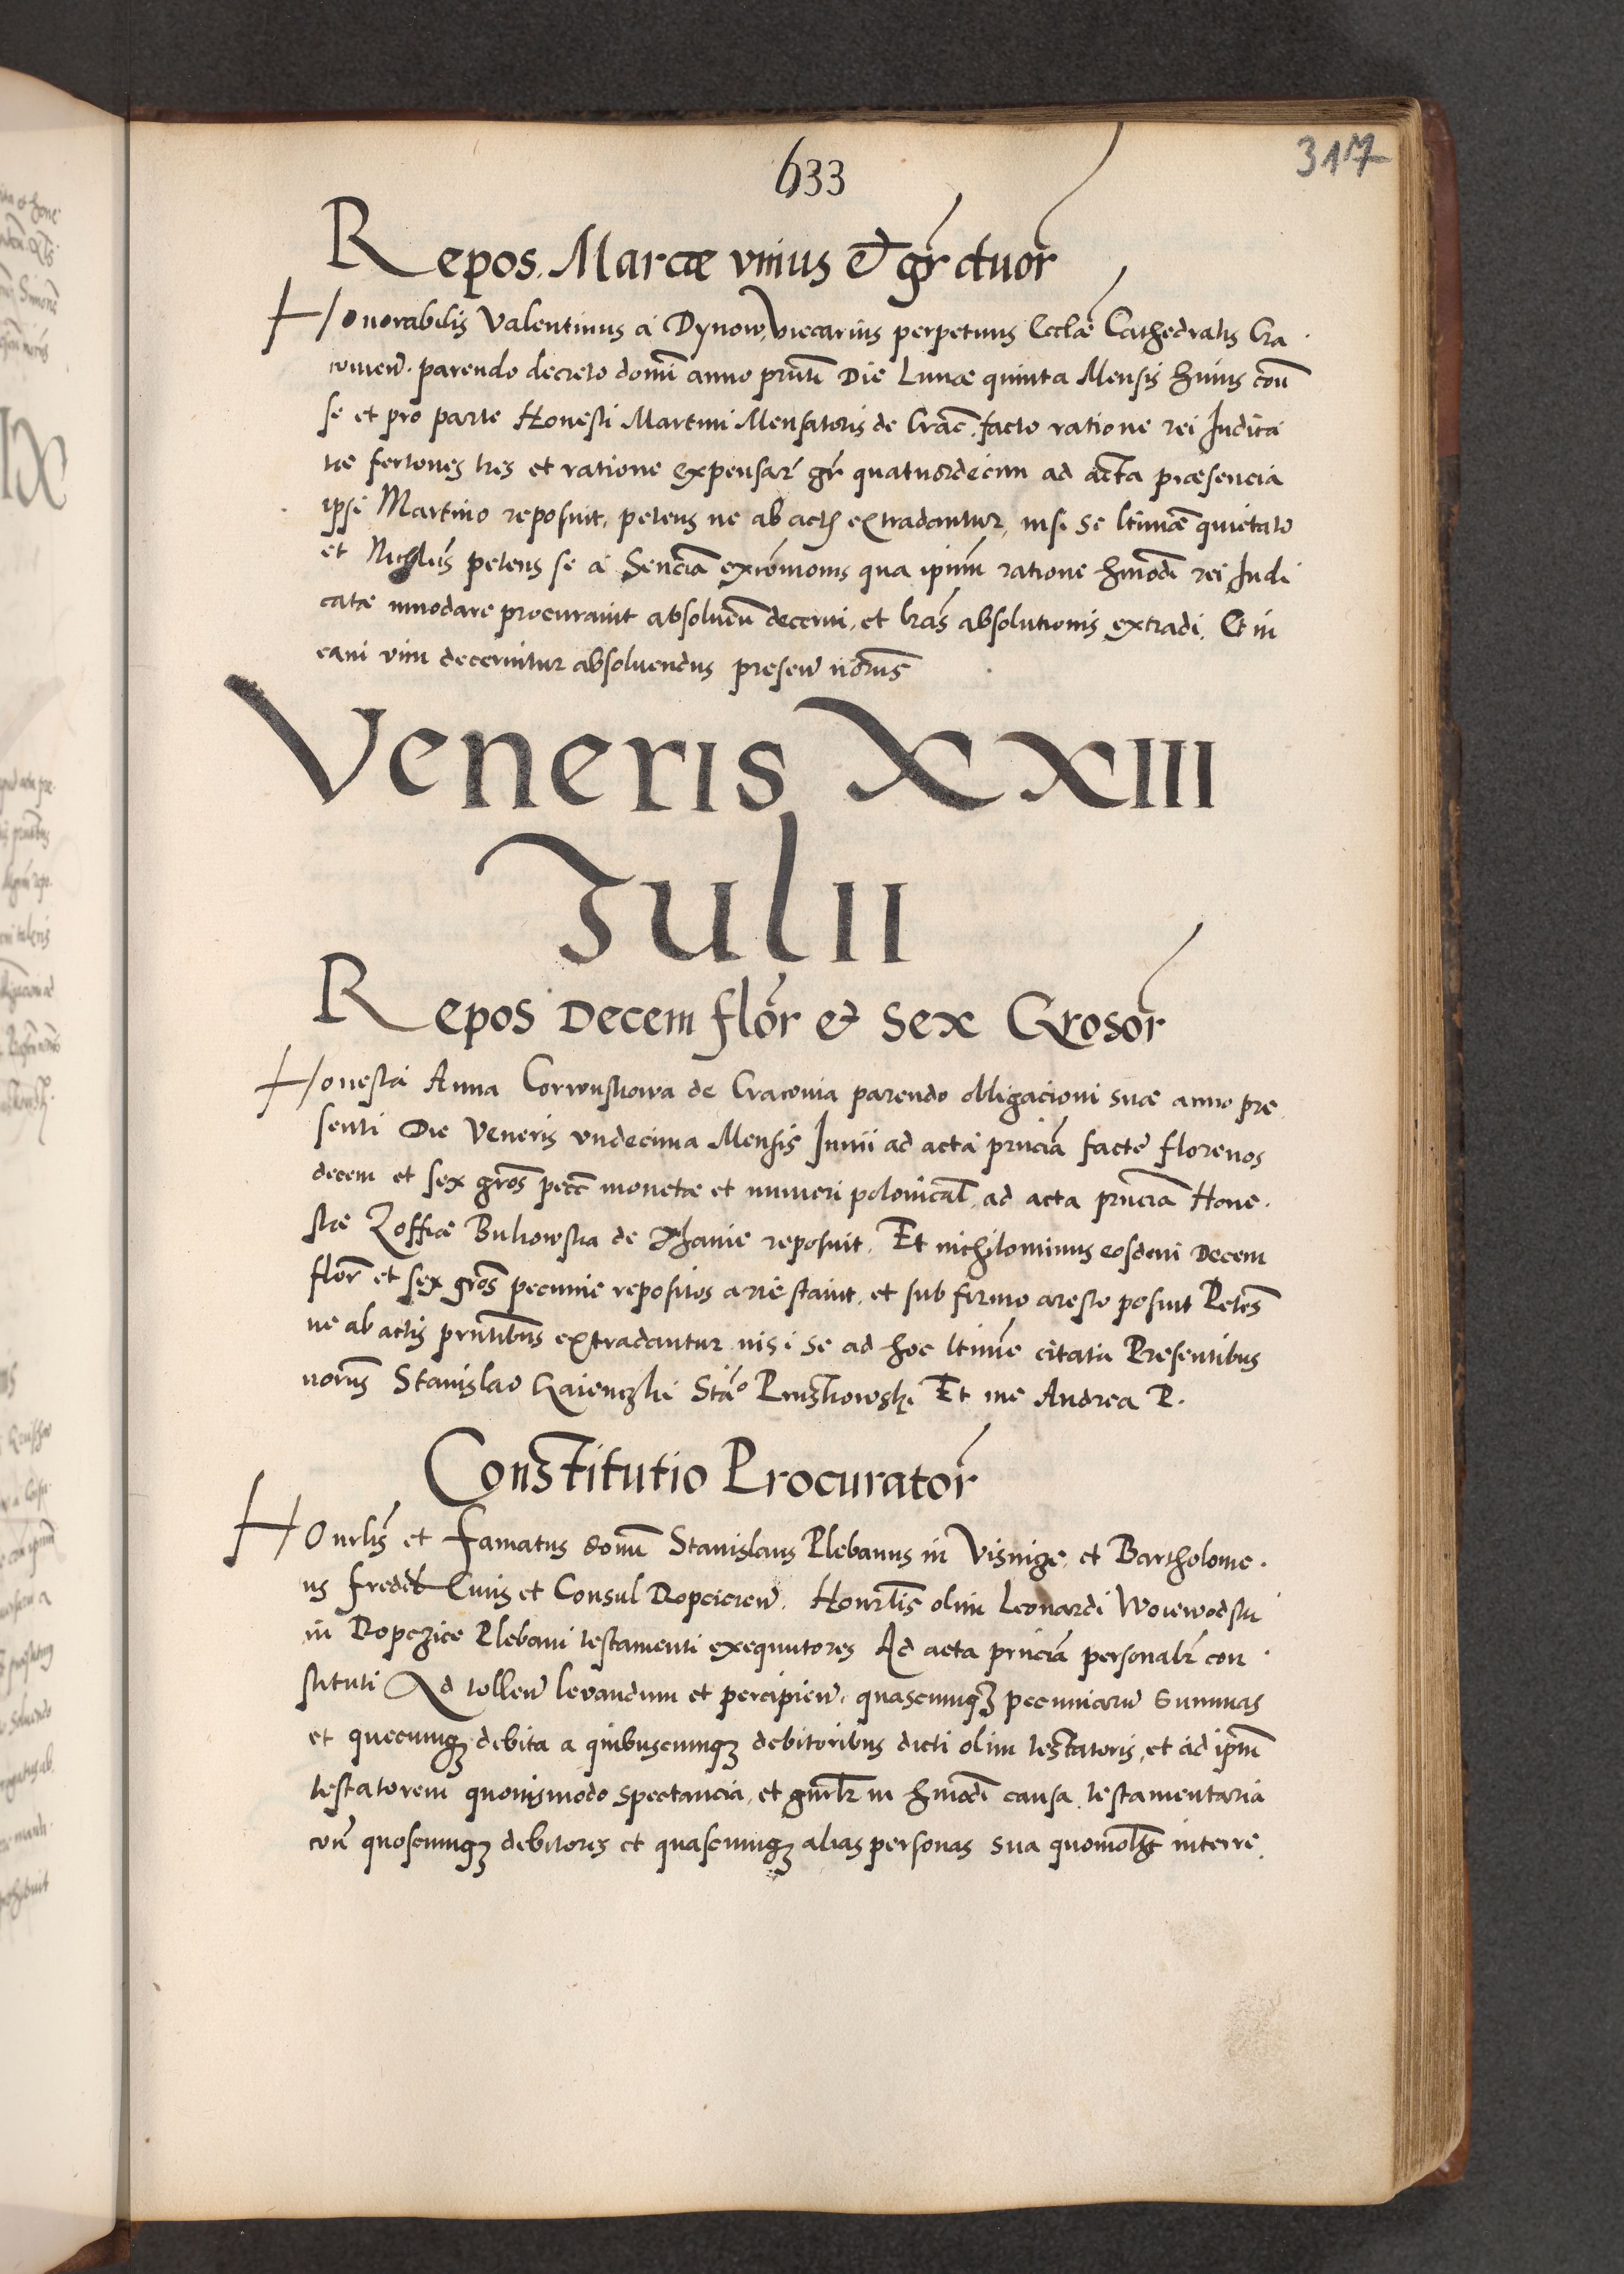 633
317
Repos. Marcæ vnius & gr̃ duor̃
Honorabilis Valentinus a Dynow, viecarius perpetuus Ecclæ̃ Cathedralis Cra
couien̄. parendo decreto domī anno prn̄ti Die Lunæ quinta Mensis huius con̄
se et pro parte Honesti Martini Mensatoris de Crac̄. facto ratione rei Iudica
tæ fertones tres et ratione expensar̃ gr̃ quatuordecim ad acta præsencia
ipsi Martino reposuit, petens ne ab actis extradantur, nisi se ltimæ̃ quietato
et Nichlūs petens se a Senciã exc̃omonis qua ipsum ratione hmōdi rei Iudi
catæ innodare procurauit absoluen̄ decerni, et lrãs absolutionis extradi. Et in
eam vim decernitur absoluendus presen̄ nōrus̄
Veneris XXIII
Julii
Repos Decem flor̃ & sex Grosor̃
Honesta Anna de Cracouia parendo obligacioni suæ anno pre
senti Die Veneris vndecima Mensis Iunii ad acta prn̄ciã factē florenos
decem et sex gros̄ pecc̄ monetæ et numeri polonical̃. ad acta prn̄ciã Hone.
stæ Zoffiæ Bukowska de reposuit. Et nichilominus eosdem Decem
flor̃ et sex gros̄ pecuniæ repositos arrestauit, et sub firmo aresto posuit Petēs
ne ab actis prn̄tibus extradantur nisi se ad hoc ltime citata Presentibus
norus̄ Stanislao Staō Et me Andrea P.
Constitutio Procurator̃
Honrlis̃ et Famatus domī Stanislaus Plebanus in Visnige, et Bartholome.
us Fredel Ciuis et Consul Ropcicien̄. Honrlis̃ olim Leonardi Woiewodska
in Ropczice Plebani testamenti exequutores Ad acta prn̄ciã personalr̃ con
stituti Ad tollen̄ levandum et percipien̄. quascunqȝ pecuniarum summas
et quecunqȝ debita a quibuscunqȝ debitoribus dicti olim testatoris, et ad ipm̄
testatorem quouismodo spectancia, et gnrlr̃ in hmōdi causa testamentaria
con̄ quoscunqȝ debitores et quascunqȝ alias personas sua quomolȝt interre.